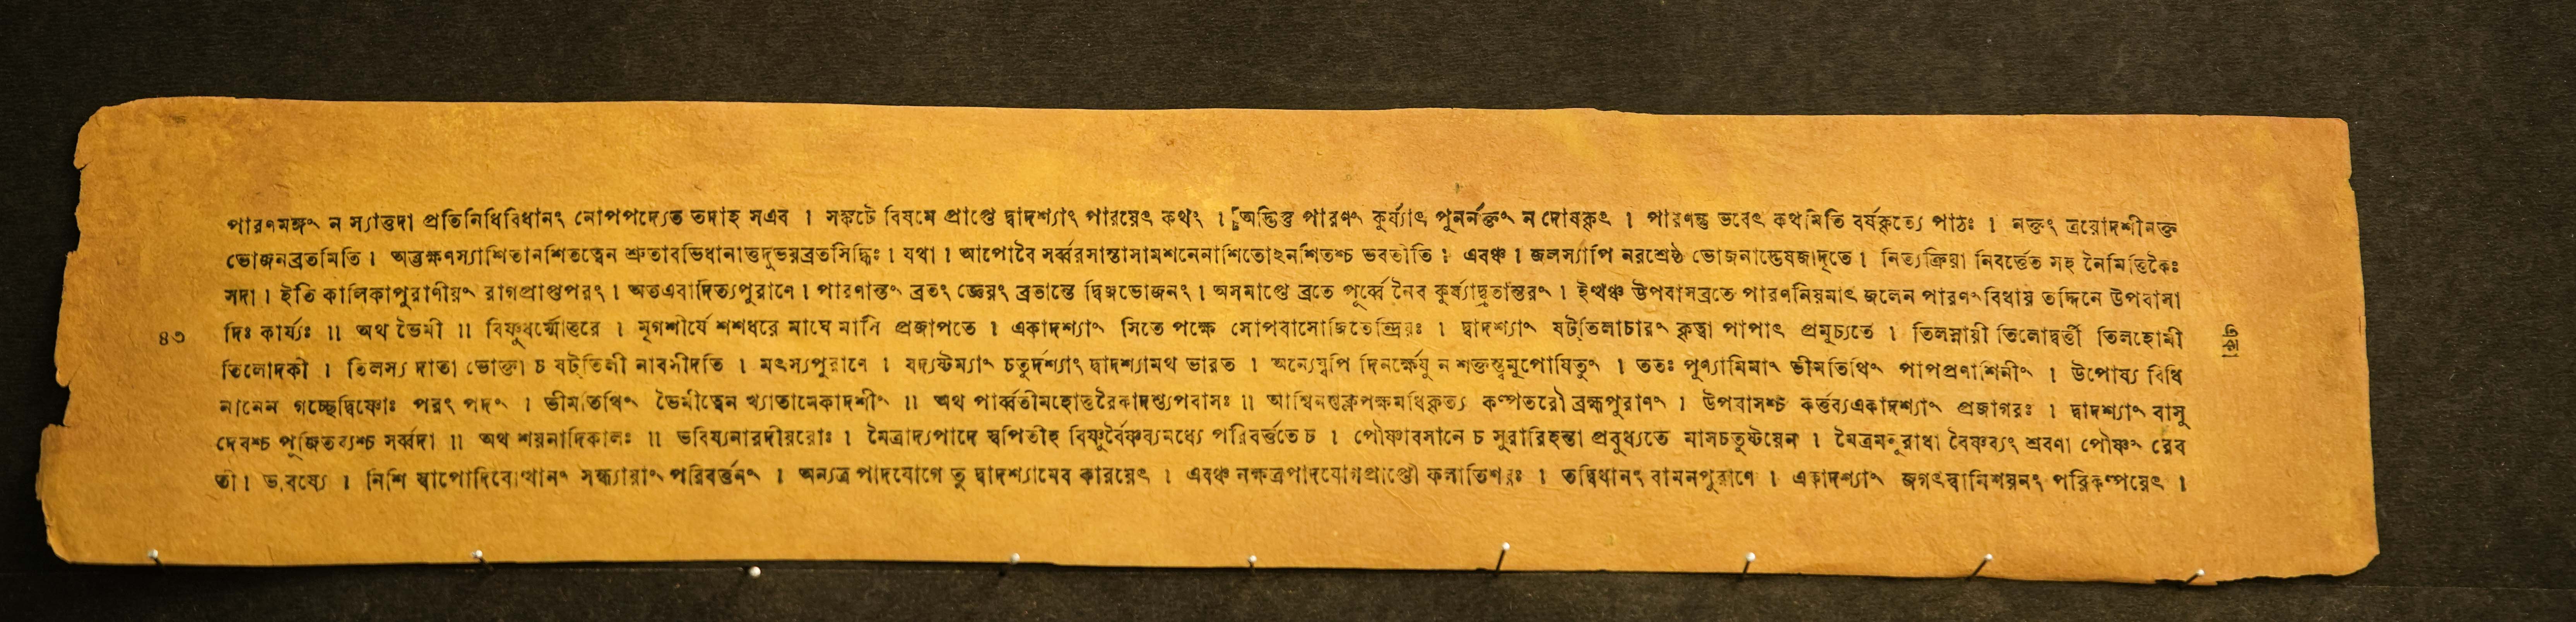 পারণমঙ্গং ন স্যাত্তদা প্রতিনিধিবিধানং নোপপদ্যেত তদাহ সএব । সঙ্কটে বিষমে প্রাপ্তে দ্বাদশ্যাং পারয়েৎ কথং । অদ্ভিস্তু পারণং কুর্য্যাৎ পুনর্নক্তং ন দোষকৃৎ । পারণন্তু ভবেৎ কথমিতি বর্ষকৃত্যে পাঠঃ । নক্তং ত্রয়োদশীনক্ত
ভোজনব্রতমিতি । অব্ভক্ষণস্যাশিতানশিতত্বেন শ্রুতাবভিধানাত্তদুভয়ব্রতসিদ্ধিঃ । যথা । আপোবৈ সর্ব্বরসান্তাসামশনেনাশিতোঽনশিতশ্চ ভবতীতি । এবঞ্চ । জলস্যাপি নরশ্রেষ্ঠ ভোজনাদ্ভেষজাদৃতে । নিত্যক্রিয়া নিবর্ত্তেত সহ নৈমিত্তিকৈঃ
সদা । ইতি কালিকাপুরাণীয়ং রাগপ্রাপ্তপরং । অতএবাদিত্যপুরাণে । পারণান্তং ব্রতং জ্ঞেয়ং ব্রতান্তে দ্বিজভোজনং । অসমাপ্তে ব্রতে পূর্ব্বে নৈব কুর্য্যাদ্ব্রতান্তরং । ইত্থঞ্চ উপবাসব্রতে পারণনিয়মাৎ জলেন পারণং বিধায় তদ্দিনে উপবাসা
৪৩ দিঃ কার্য্যঃ ॥ অথ ভৈমী ॥ বিষ্ণুধর্ম্মোত্তরে । মৃগশীর্ষে শশধরে মাঘে মাসি প্রজাপতে । একাদশ্যাং সিতে পক্ষে সোপবাসোজিতেন্দ্রিয়ঃ । দ্বাদশ্যাং ষট্তিলাচারং কৃত্বা পাপাৎ প্রমুচ্যতে । তিলস্নায়ী তিলোদ্বর্ত্তী তিলহোমী
তিলোদকী । তিলস্য দাতা ভোক্তা চ ষট্তিলী নাবসীদতি । মৎস্যপুরাণে । যদ্যষ্টম্যাং চতুর্দশ্যাং দ্বাদশ্যামথ ভারত । অন্যেষ্বপি দিনর্ক্ষেষু ন শক্তস্ত্বমুপোষিতুং । ততঃ পুণ্যামিমাং ভীমতিথিং পাপপ্রণাশিনীং । উপোষ্য বিধি
নানেন গচ্ছেদ্বিষ্ণোঃ পরং পদং । ভীমতিথিং ভৈমীত্বেন খ্যাতামেকাদশীং ॥ অথ পার্ব্বতীমহোত্তরৈকাদশ্যুপবাসঃ ॥ আশ্বিনশুক্লপক্ষমধিকৃত্য কল্পতরৌ ব্রহ্মপুরাণং । উপবাসশ্চ কর্ত্তব্যএকাদশ্যাং প্রজাগরঃ । দ্বাদশ্যাং বাসু
দেবশ্চ পূজিতব্যশ্চ সর্ব্বদা ॥ অথ শয়নাদিকালঃ ॥ ভবিষ্যনারদীয়য়োঃ । মৈত্রাদ্যপাদে স্বপিতীহ বিষ্ণুর্বৈষ্ণব্যমধ্যে পরিবর্ত্ততে চ । পৌষ্ণাবসানে চ সুরারিহন্তা প্রবুধ্যতে মাসচতুষ্টয়েন । মৈত্রমনুরাধা বৈষ্ণব্যং শ্রবণা পৌষ্ণং রেব
তী । ভবিষ্যে । নিশি স্বাপোদিবোত্থানং সন্ধ্যায়াং পরিবর্ত্তনং । অন্যত্র পাদযোগে তু দ্বাদশ্যামেব কারয়েৎ । এবঞ্চ নক্ষত্রপাদযোগপ্রাপ্তৌ ফলাতিশয়ঃ । তদ্বিধানং বামনপুরাণে । একাদশ্যাং জগৎস্বামিশয়নং পরিকল্পয়েৎ ।